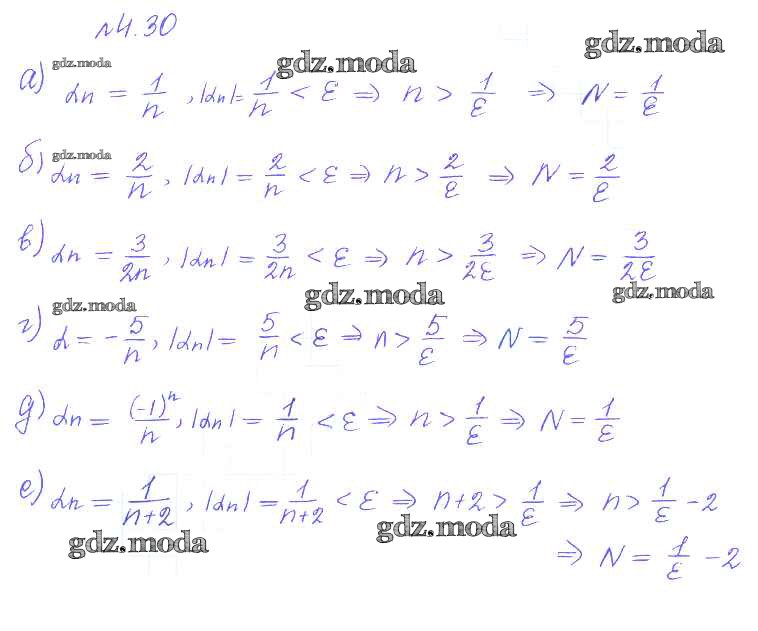 №4.30
gdz.moda gdz.moda gdz.moda
а) αn = 1/n , |αn| = 1/n < ε ⇒ n > 1/ε ⇒ N = 1/ε
gdz.moda
б) αn = 2/n , |αn| = 2/n < ε ⇒ n > 2/ε ⇒ N = 2/ε
в) αn = 3/2n , |αn| = 3/2n < ε ⇒ n > 3/2ε ⇒ N = 3/2ε
gdz.moda gdz.moda gdz.moda
г) α = -5/n , |αn| = 5/n < ε ⇒ n > 5/ε ⇒ N = 5/ε
д) αn = (-1)^n/n , |αn| = 1/n < ε ⇒ n > 1/ε ⇒ N = 1/ε
е) αn = 1/n+2 , |αn| = 1/n+2 < ε ⇒ n+2 > 1/ε ⇒ n > 1/ε -2
gdz.moda gdz.moda
⇒ N = 1/ε -2